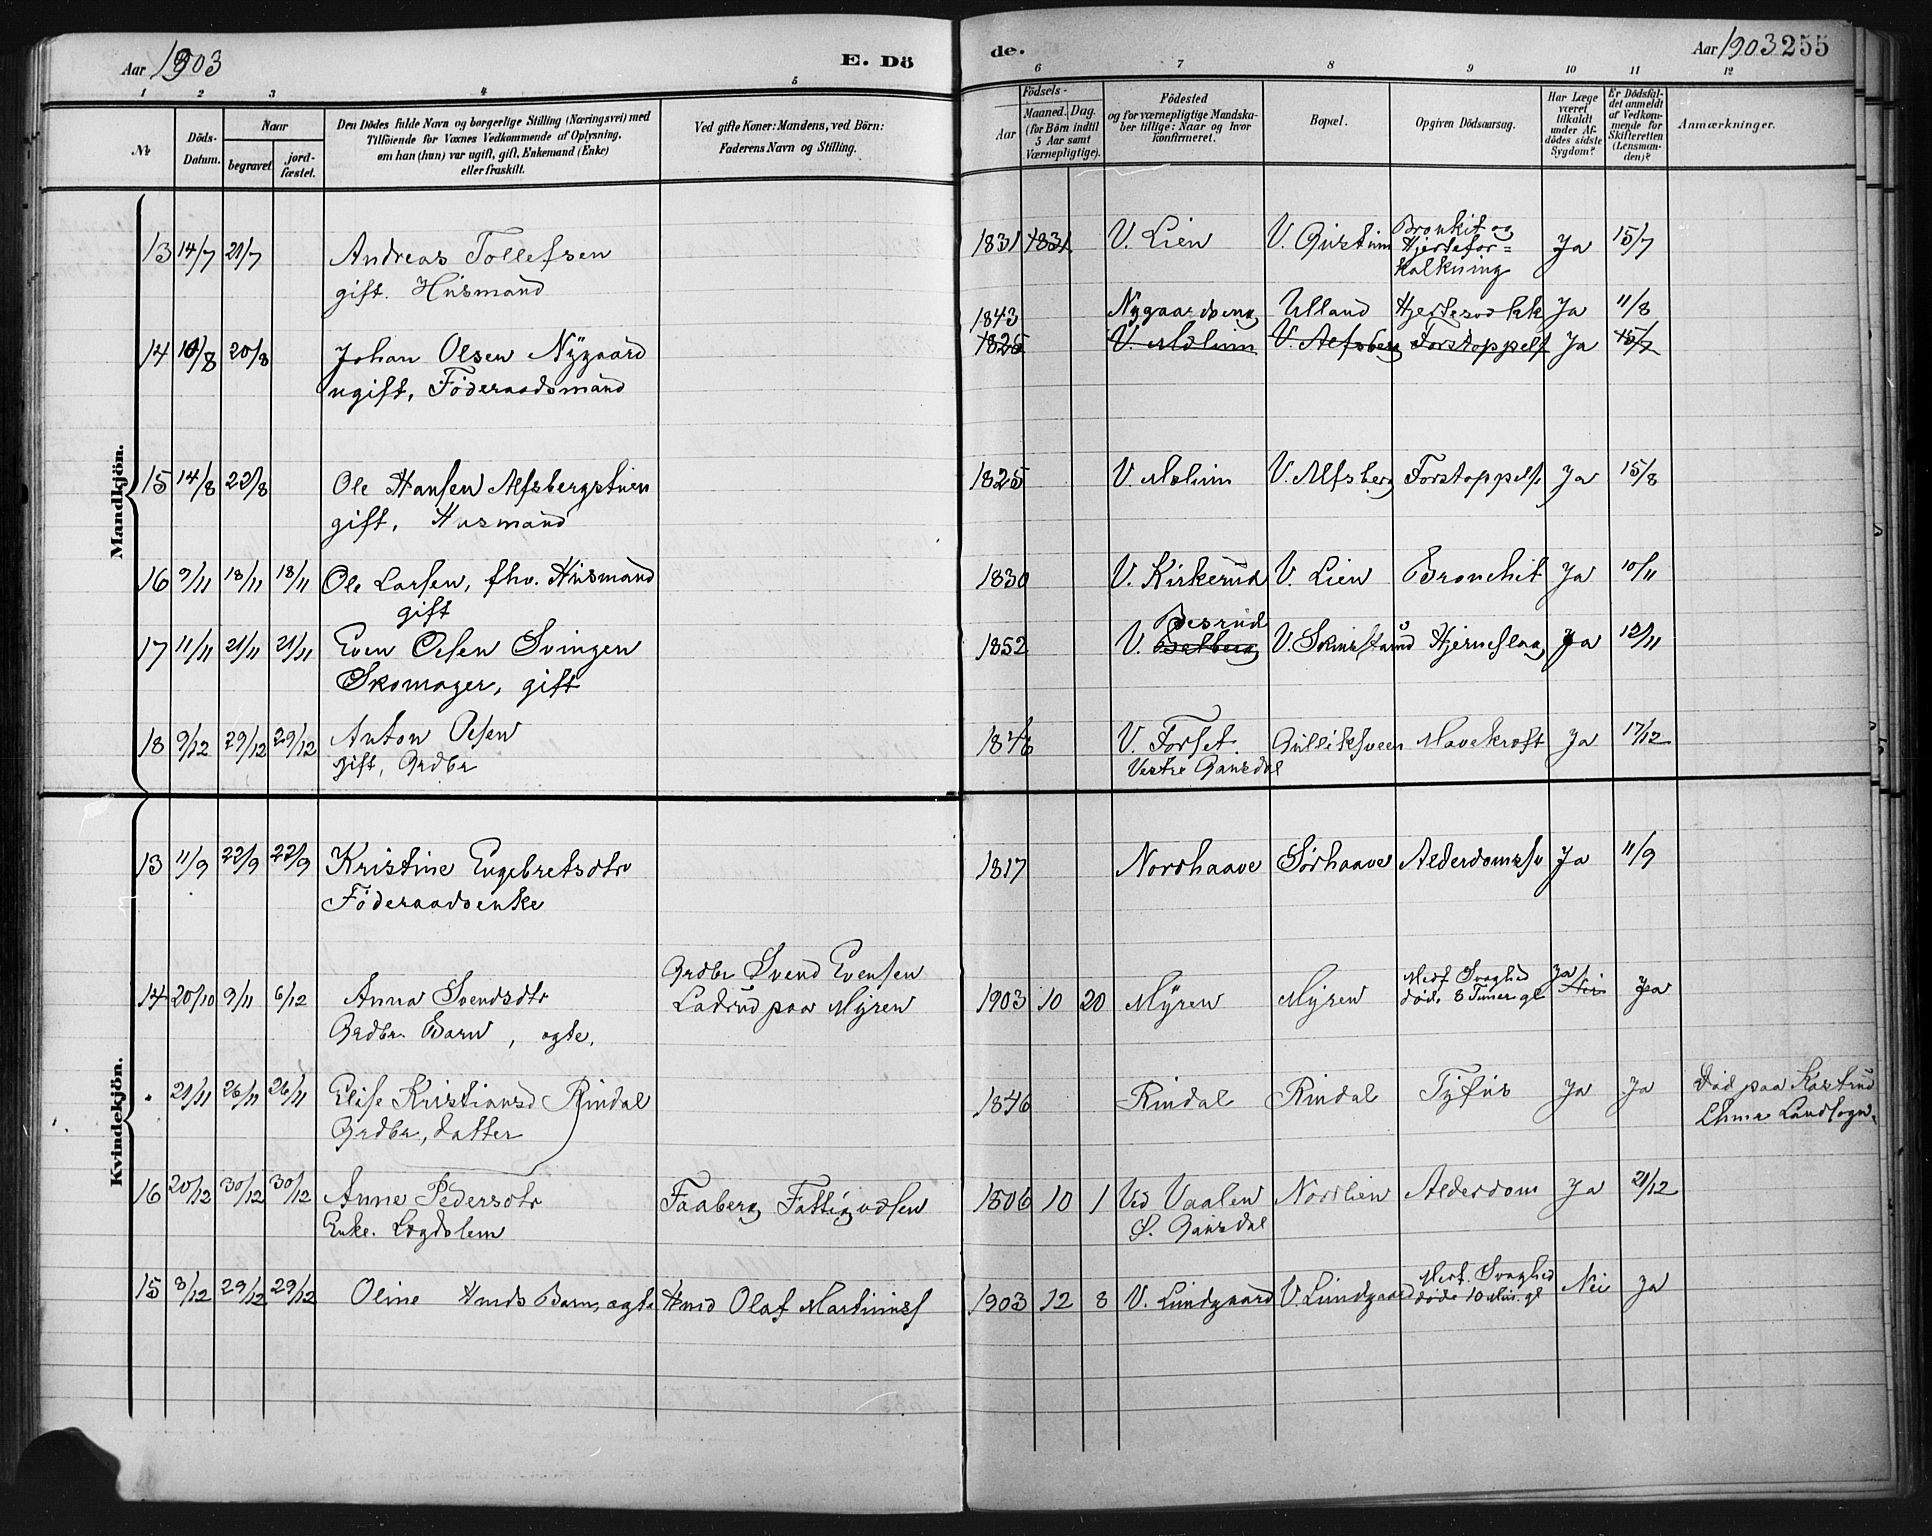 Aar 1903
E. Dö
de.
Aar 1903 255
1 2 3 4 5 6 7 8 9 10 11 12
No
Döds-
Datum.
Naar
begravet
jord-
fæstet.
Den Dödes fulde Navn og borgerlige Stilling (Næringsvei) med
Tilföiende for Voxnes Vedkommende af Oplysning,
om han (hun) var ugift, gift, Enkemand (Enke)
eller fraskilt.
Ved gifte Koner: Mandens, ved Börn:
Faderens Navn og Stilling.
Födsels-
Aar
Maaned. Dag.
(for Börn indtil
5 Aar samt
Værnepligtige).
Födested
og for værnepligtige Mandska-
ber tillige: Naar og hvor
Konfirmeret.
Bopæl.
Opgiven Dödsaarsag.
Har Læge
været
tilkaldt
under Af-
dödes sidste
Sygdom?
Er Dödsfal-
det anmeldt
af Vedkom-
mende for
Skifteretten
(Lensman-
den)?
Anmærkninger.
Mandkjön.
13 14/7 21/7 Andreas Tollefsen 1831 1831 V. Lien V. Bronkit og Hjertefor= kalkning Ja 15/7
gift. Husmand
14 10/8 20/8 Johan Olsen Nygaard 1843 Nygaardseng Ulland Ja 11/8
ugift, Föderaadsmand 1825 Forstoppels Ja 15/7
15 14/8 22/8 Ole Hansen Alfsbergstuen 1825 V. V. Alfsberg Forstoppels. Ja 15/8
gift, Husmand
16 9/11 18/11 18/11 Ole Larsen, fhv. Husmand 1830 V. Kirkerud V. Lien Bronchit Ja 10/11
gift
17 11/11 21/11 21/11 Even Olsen Svingen 1852 V. Besrud V. Hjerneslag Ja 12/11
Skomager, gift
18 9/12 29/12 29/12 Anton Olsen V. Forset. Gulliksveen Mavekræft Ja 17/12
gift, Grdbr Vestre Gausdal
Kvindekjön.
13 11/9 22/9 22/9 Kristine Engebretsdtr 1817 Nordhaave Sörhaave Alderdomssv Ja 11/9
Föderaadsenke
14 20/10 9/11 6/12 Anna Svendsdtr Grdbr Svend Evensen 1903 10 20 Myren Myren Medf. Svaghed Ja Nei Ja
Grdbr. Barn, ægte. Ladsrud paa Myren död, 8 Timer gl
" 21/11 26/11 26/11 Elise Kristiansd Rindal 1846 Rindal Rindal Tyfus Ja Ja Död paa Kastrud
Grdbr, datter Lhmr Landsogn.
16 20/12 30/12 30/12 Anne Pedersdtr Faaberg Fattigvæsen 1806 10 1 Ved Vaalen Nordlien Alderdom Ja 21/12
Enke. Lægdslem Ö. Gausdal
15 8/12 29/12 29/12 Oline Hmds Barn, ægte Hmd Olaf Martinius 1903 12 8 V. Lundgaard V. Lundgaard Medf. Svaghed Nei Ja
döde 10 Min. gl